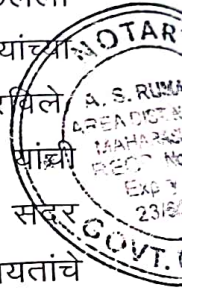 यांच्या
रविले
यांची
सदर
यतांचे
NOTAR
A. S. RUMA
AREA DIST.
MAHARAS
REGD. No
Exp
23/6
GOVT.